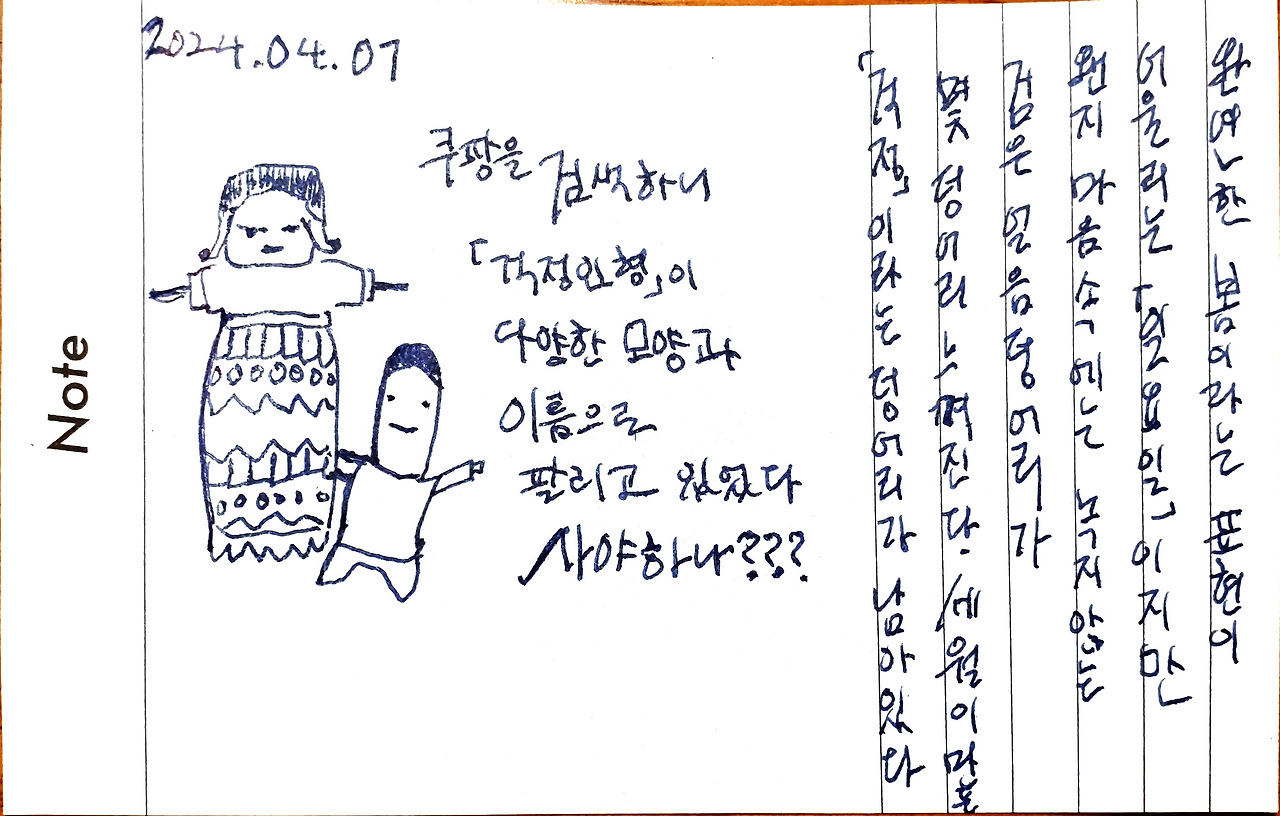 2024.04.07
쿠팡을 검색하니
「걱정인형」이
다양한 모양과
이름으로
팔리고 있었다
사야하나???
완연한 봄이라는 표현이
어울리는 「일요일」이지만
왠지 마음속에는 녹지않는
검은 얼음덩어리가
몇 덩어리 느껴진다. 세월이
「걱정」이라는 덩어리가 남아있다
Note